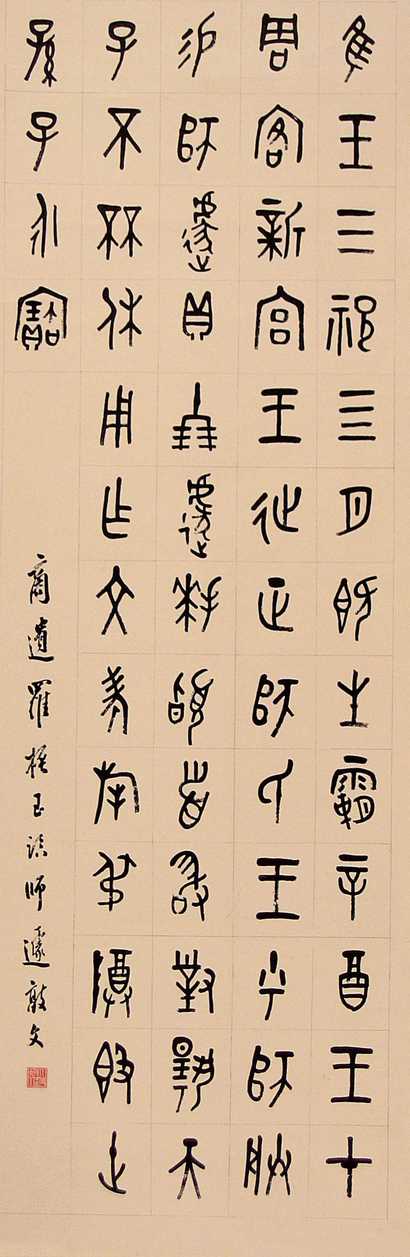 隹王三祀四月既生霸辛酉王才
周客新宮王征正師氏王乎師朕
易師遽貝十朋遽拜稽首敢對揚天
子不㔻休用乍文考旄叔尊𣪘世
孫子永寶
商遺羅振玉臨師遽敦文